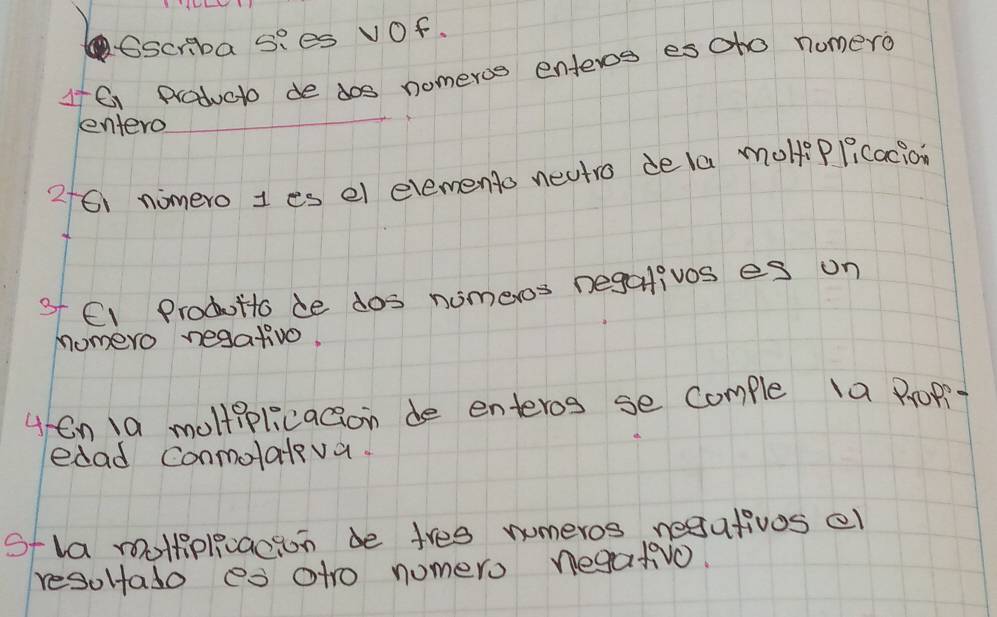 Escriba si es V O F.
1- El Producto de dos numeros enteros es otro numero
entero
2- El número 1 es el elemento neutro de la multiplicación
3- El Produtto de dos números negativos es un
numero negativo.
4- En la multiplicación de enteros se comple la Propi-
edad conmotativa.
5- la multiplicación de tres numeros negativos el
resultado es otro numero negativo.